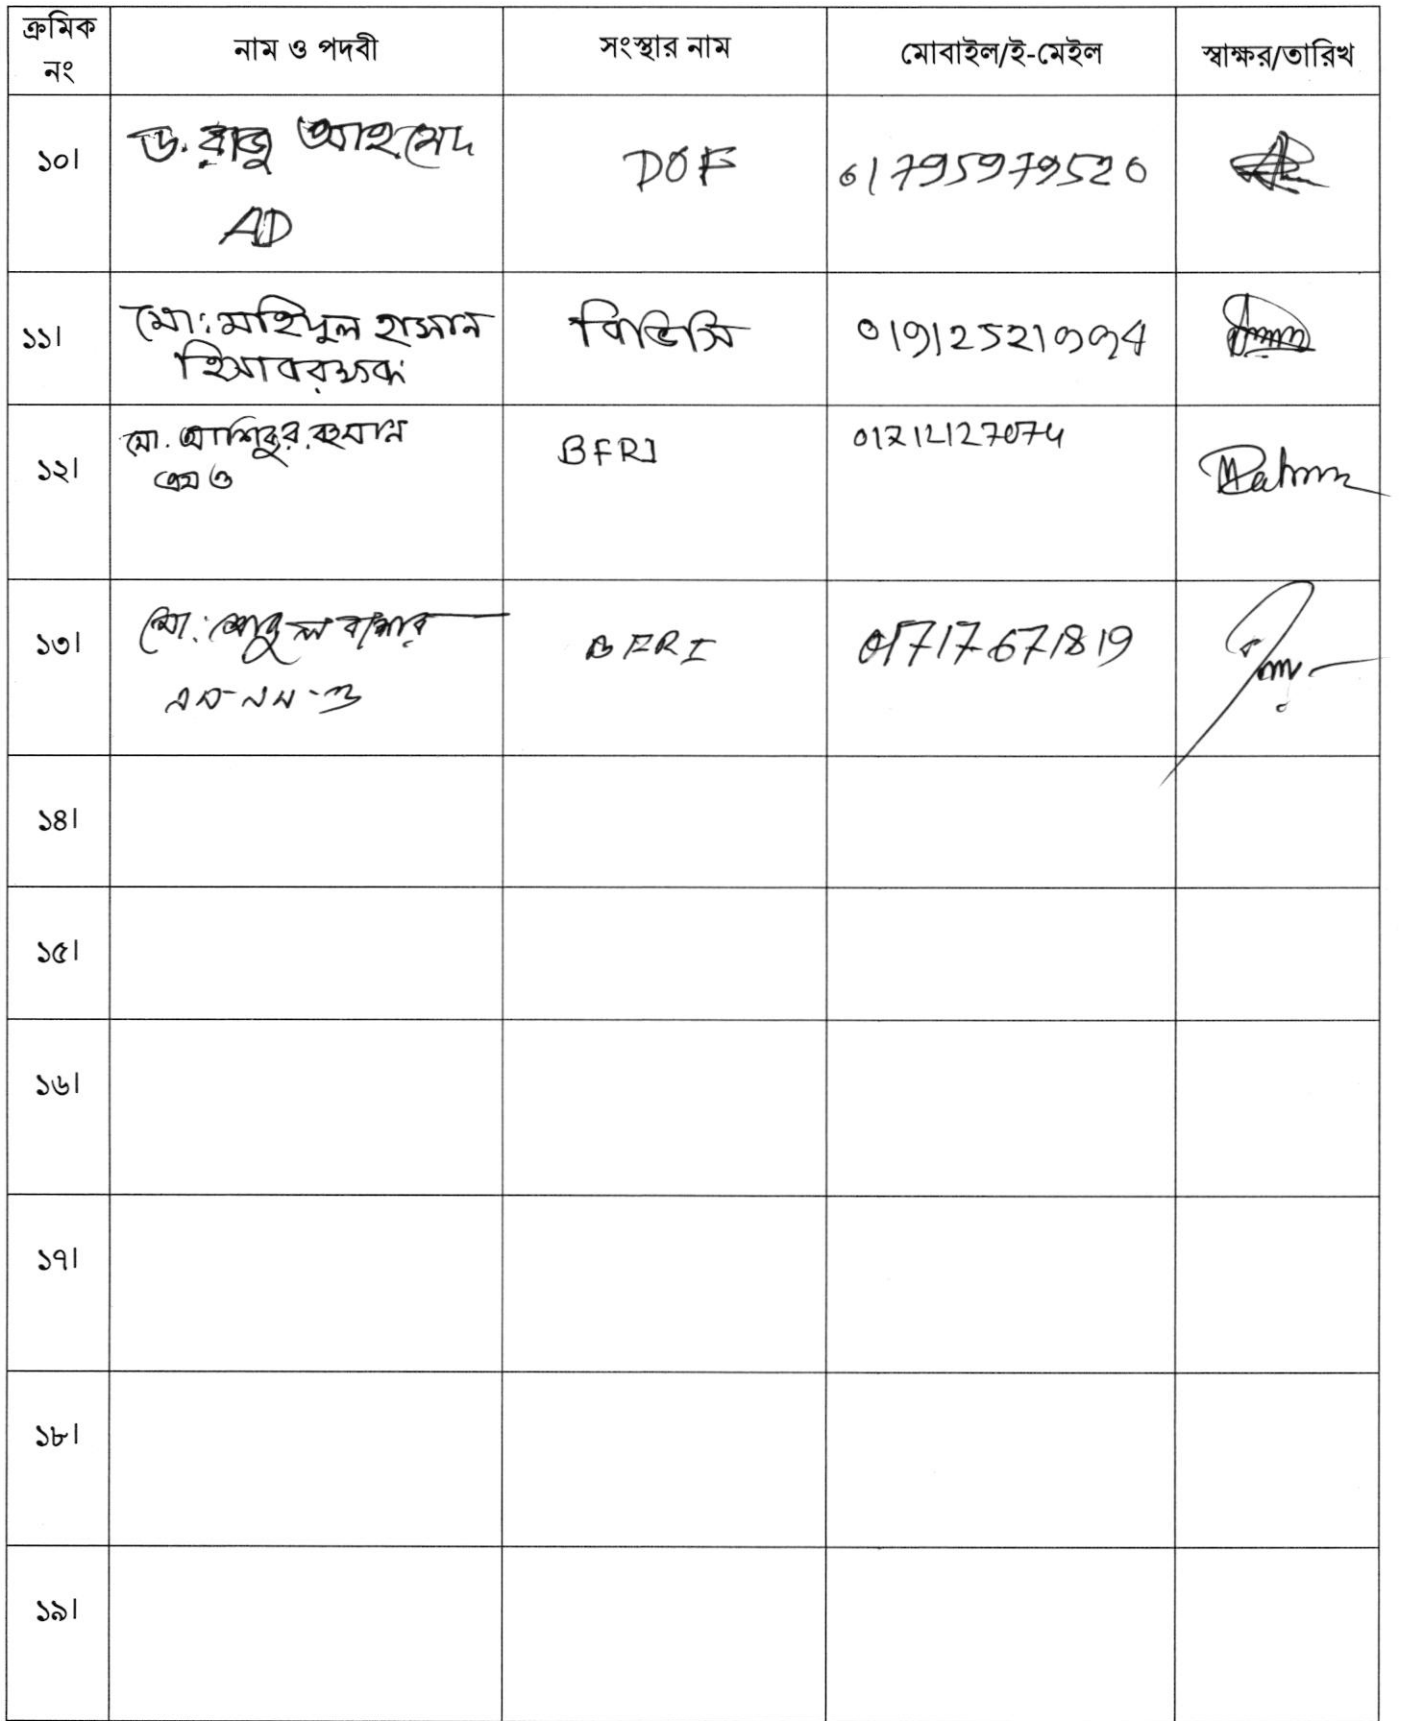 ক্রমিক
নং
নাম ও পদবী
সংস্থার নাম
মোবাইল/ই-মেইল
স্বাক্ষর/তারিখ
১০।
ড. রাজু আহমেদ
AD
DOF
01795979520
১১।
মো: মহিদুল হাসান
হিসাবরক্ষক
বিভিসি
১২।
মো. আশিকুর রহমান
এম ও
BFRI
01712127074
১৩।
মো:
BFRI
01717671819
১৪।
১৫।
১৬।
১৭।
১৮।
১৯।